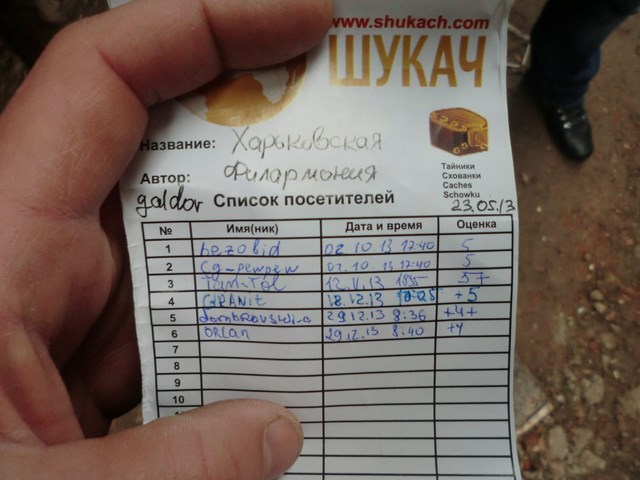 www.shukach.com
ШУКАЧ
Название: Харьковская
Филармония
Автор:
galdor
Тайники
Схованки
Caches
Schowku
23.05.13
Список посетителей
№ Имя(ник) Дата и время Оценка
1 bezobid 02.10.13 17:40 5
2 cg-pewpew 02.10.13 17:40 5
3 12.11.13 5+
4 GRANIT 18.12.13 +5
5 29.12.13 8:36 +4+
6 orlan 29.12.13 8:40 +4
7
8
9
10